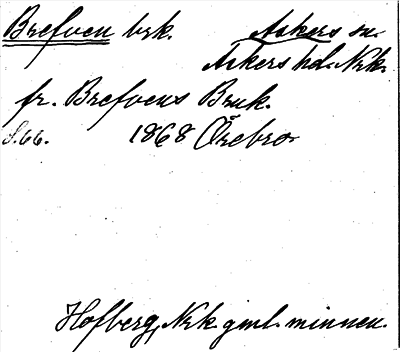 Brefven brk. Askers sn.
Askers hd. Nrk.
fr. Brefvens Bruk.
S. 66. 1868 Örebro
Hofberg, Nrk. gml. minnen.